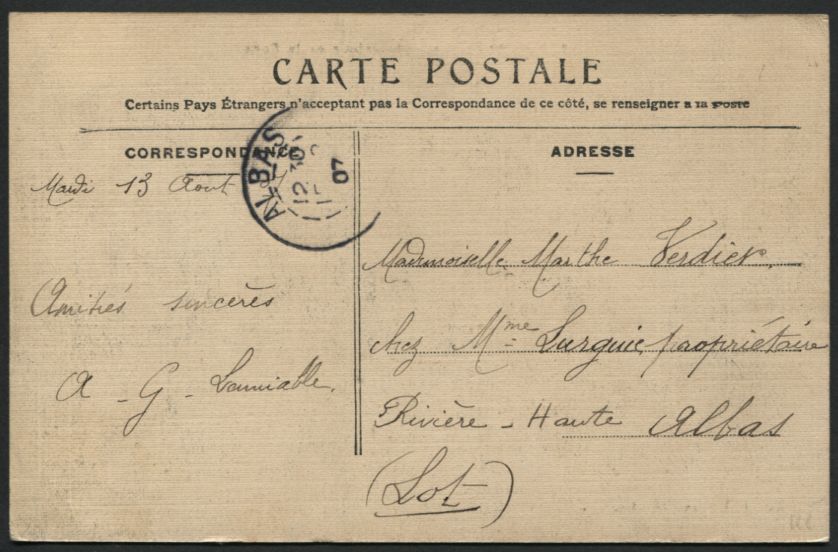 CARTE POSTALE
Certains Pays Étrangers n'acceptant pas la Correspondance de ce côté, se renseigner à la Poste
CORRESPONDANCE
Mardi 13 Aout
Amitiés sincères
A - G - Lamiable.
ALBAS
07
ADRESSE
Mademoiselle Marthe Verdier.
chez Mme Lurguie, propriétaire
Rivière - Haute Albas
(Lot)